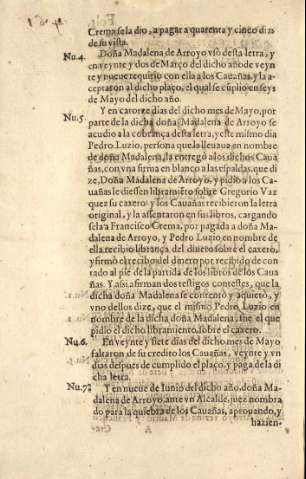 Crema se la dio, a pagar a quarenta y cinco dias
de su vista.
Nu.4. Doña Madalena de Arroyo vsò desta letra, y
en veynte y dos de Março del dicho año de veyn
te y nueue requirio con ella a los Cauañas, y la a-
ceptaron al dicho plaço, el qual se cūplio en seys
de Mayo del dicho año.
Nu.5. Y en catorze dias del dicho mes de Mayo, por
parte de la dicha doña Madalena de Arroyo se
acudio a la cobrança desta letra, y este mismo dia
Pedro Luzio, persona que la lleuaua en nombre
de doña Madalena, la entregò a los dichos Caua
ñas, con vna firma en blanco a las espaldas, que di
ze, Doña Madalena de Arroyo, y pidio a los Ca-
uañas le diessen libramiēto sobre Gregorio Vaz
quez su caxero y los Cauañas recibieron la letra
original, y la assentaron en sus libros, cargando
sela a Francisco Crema, por pagada a doña Ma-
dalena de Arroyo, y Pedro Luzio en nombre de
ella recibio librança del dinero sobre el caxero,
y firmò el recibo del dinero por recibido de con
tado al pie de la partida de los libros de los Caua
ñas. Y assi afirman dos testigos contestes, que la
dicha doña Madalena se contentò y aquietò, y
vno dellos dize, que el mismo Pedro Luzio en
nombre de la dicha doña Madalena, fue el que
pidio el dicho libramiento sobre el caxero.
Nu.6. En veynte y siete dias del dicho mes de Mayo
faltaron de su credito los Cauañas, veynte y vn
dias despues de cumplido el plaço, y paga de la di
cha letra.
Nu.7. Y en nueue de Iunio del dicho año, doña Ma-
dalena de Arroyo, ante vn Alcalde, juez nombra
do para la quiebra de los Cauañas, aprouando, y
A hazien-